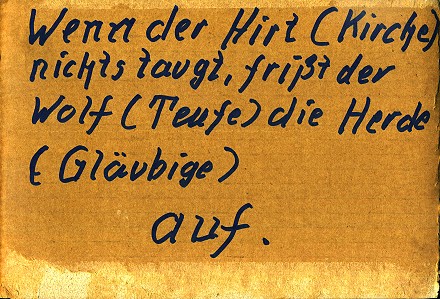 Wenn der Hirt (Kirche)
nichts taugt, frißt der
Wolf (Teufe) die Herde
(Gläubige)
auf.